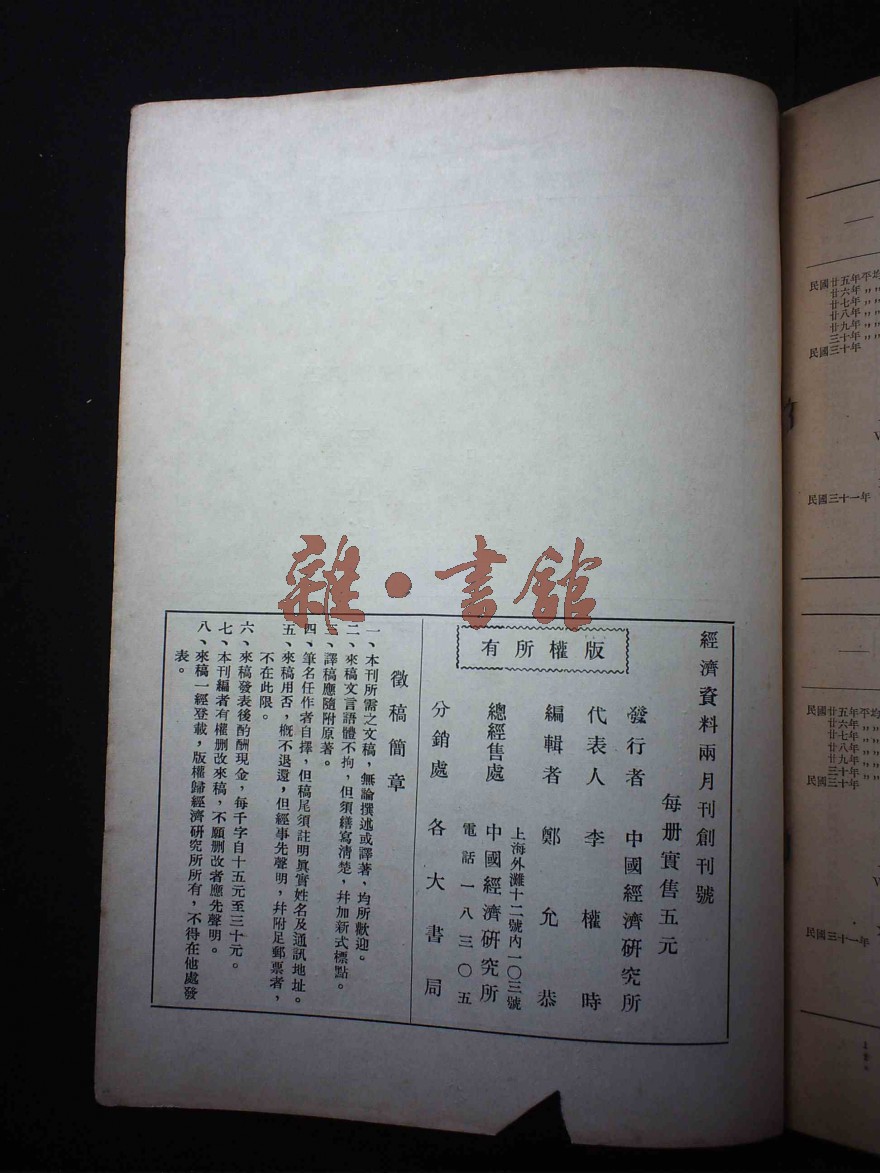 雜·書館
經濟資料兩月刊創刊號
每册實售五元
版權所有
發行者 中國經濟研究所
代表人 李權時
編輯者 鄭允恭
上海外灘十二號內一〇三號
總經售處 中國經濟研究所
電話一八三〇五
分銷處 各大書局
徵稿簡章
一、本刊所需之文稿，無論撰述或譯著、均所歡迎。
二、來稿文言語體不拘，但須繕寫清楚，幷加新式標點。
三、譯稿應隨附原著。
四、筆名任作者自擇，但稿尾須註明眞實姓名及通訊地址。
五、來稿用否，概不退還，但經事先聲明，幷附足郵票者，
不在此限。
六、來稿發表後酌酬現金，每千字自十五元至三十元。
七、本刊編者有權删改來稿，不願删改者應先聲明。
八、來稿一經登載，版權歸經濟研究所所有，不得在他處發
表。
一
民國廿五年平均
廿六年〃〃
廿七年〃〃
廿八年〃〃
廿九年〃〃
三十年〃〃
民國三十年
民國三十一年
一
民國廿五年平均
廿六年〃〃
廿七年〃〃
廿八年〃〃
廿九年〃〃
三十年〃〃
民國三十年
民國三十一年